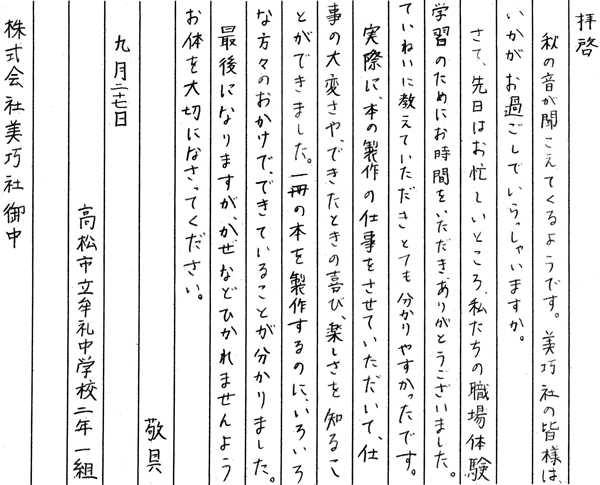 拝啓
秋の音が聞こえてくるようです。美巧社の皆様は、
いかがお過ごしでいらっしゃいますか。
さて、先日はお忙しいところ、私たちの職場体験
学習のためにお時間をいただき、ありがとうございました。
ていねいに教えていただきとても分かりやすかったです。
実際に、本の製作の仕事をさせていただいて、仕
事の大変さや、できたときの喜び、楽しさを知るこ
とができました。一冊の本を製作するのに、いろいろ
な方々のおかげで、できていることが分かりました。
最後になりますが、かぜなどひかれませんよう
お体を大切になさってください。
敬具
九月二十七日
高松市立牟礼中学校二年一組
株式会社美巧社御中